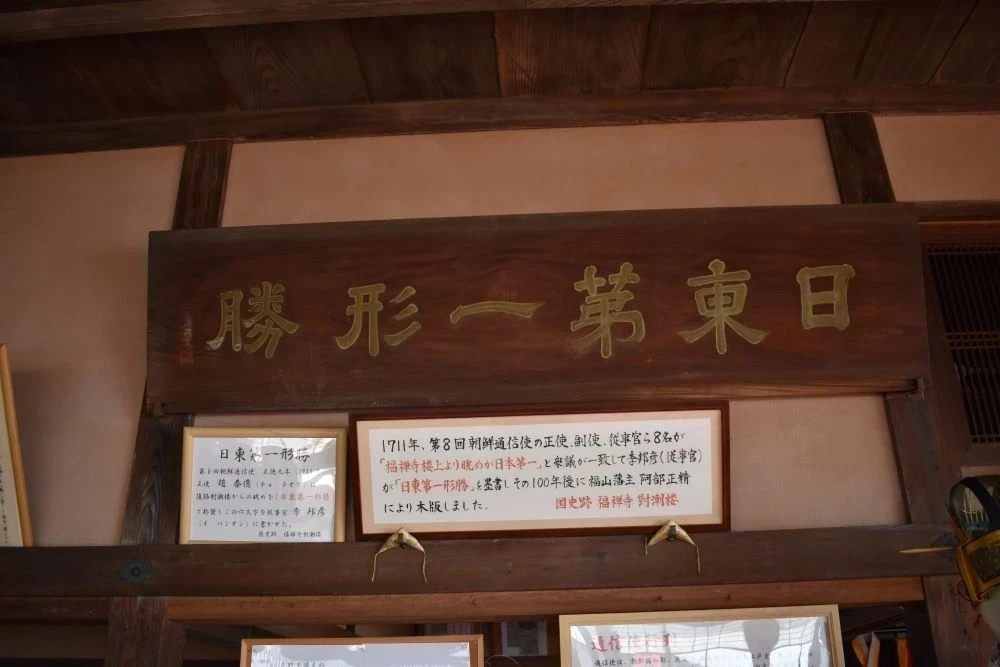 日東第一形勝
日東第一形勝
正使 趙泰億(チョ・テオク)に
復路對潮楼からの眺めを「日東第一形勝」
と称賛しこの六文字を従事官 李 邦彦
(イ・バンオン)に書かせた。
国史跡 福禅寺對潮楼
1711年、第8回朝鮮通信使の正使、副使、従事官ら8名が
「福禅寺楼上より眺めが日本第一」と衆議が一致して李邦彦(従事官)
が「日東第一形勝」を墨書しその100年後に福山藩主 阿部正精
により木版しました.
国史跡 福禅寺 對潮楼